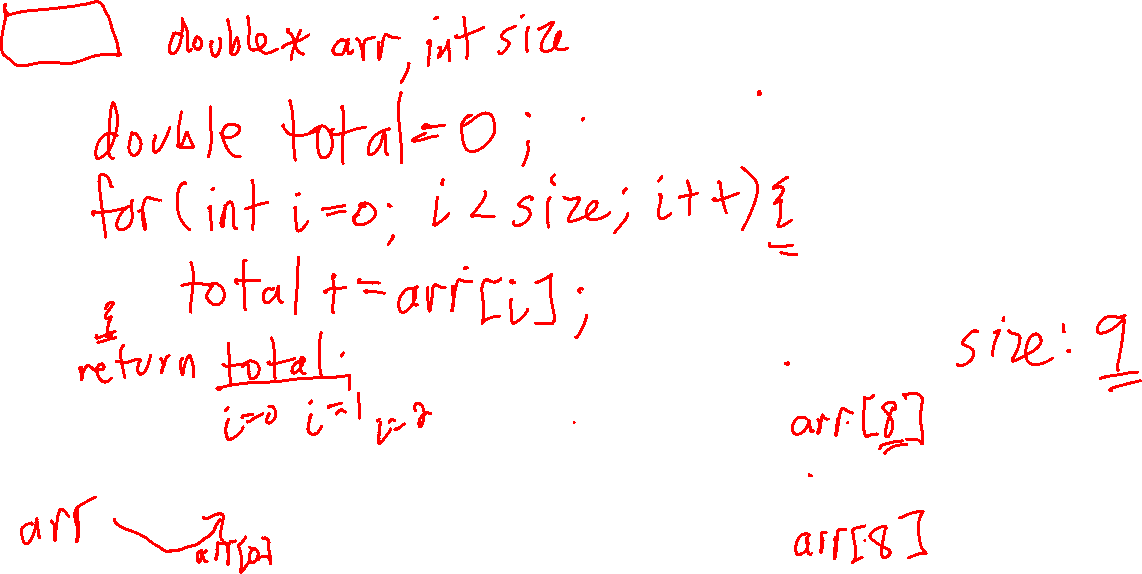 double* arr, int size
double total=0;
for(int i=0; i<size; i++){
total += arr[i];
}
return total;
size: 9
i=0 i=1 i=2
arr[8]
arr
arr[0]
arr[8]